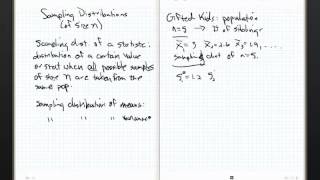 Sampling Distributions
(of size n)
Sampling dist of a statistic.
distribution of a certain value
or stat when all possible samples
of size n are taken from the
same pop.
Sampling distribution of means.
" " " variance
Gifted Kids: population
n=5 → # of siblings
x̄₁=3 x̄₂=2.6 x̄₃=1.9, ...
sampling dist of n=5.